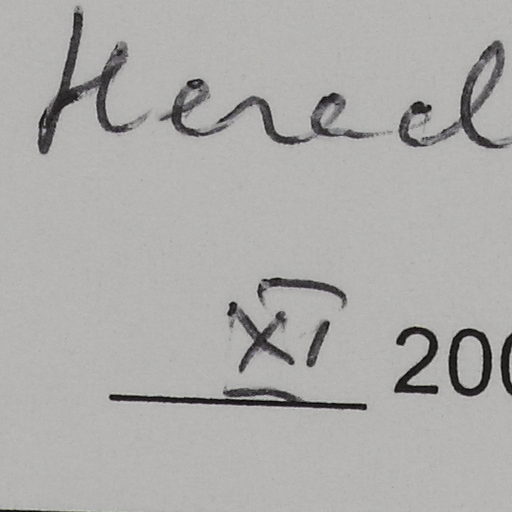 Hered
XI 200